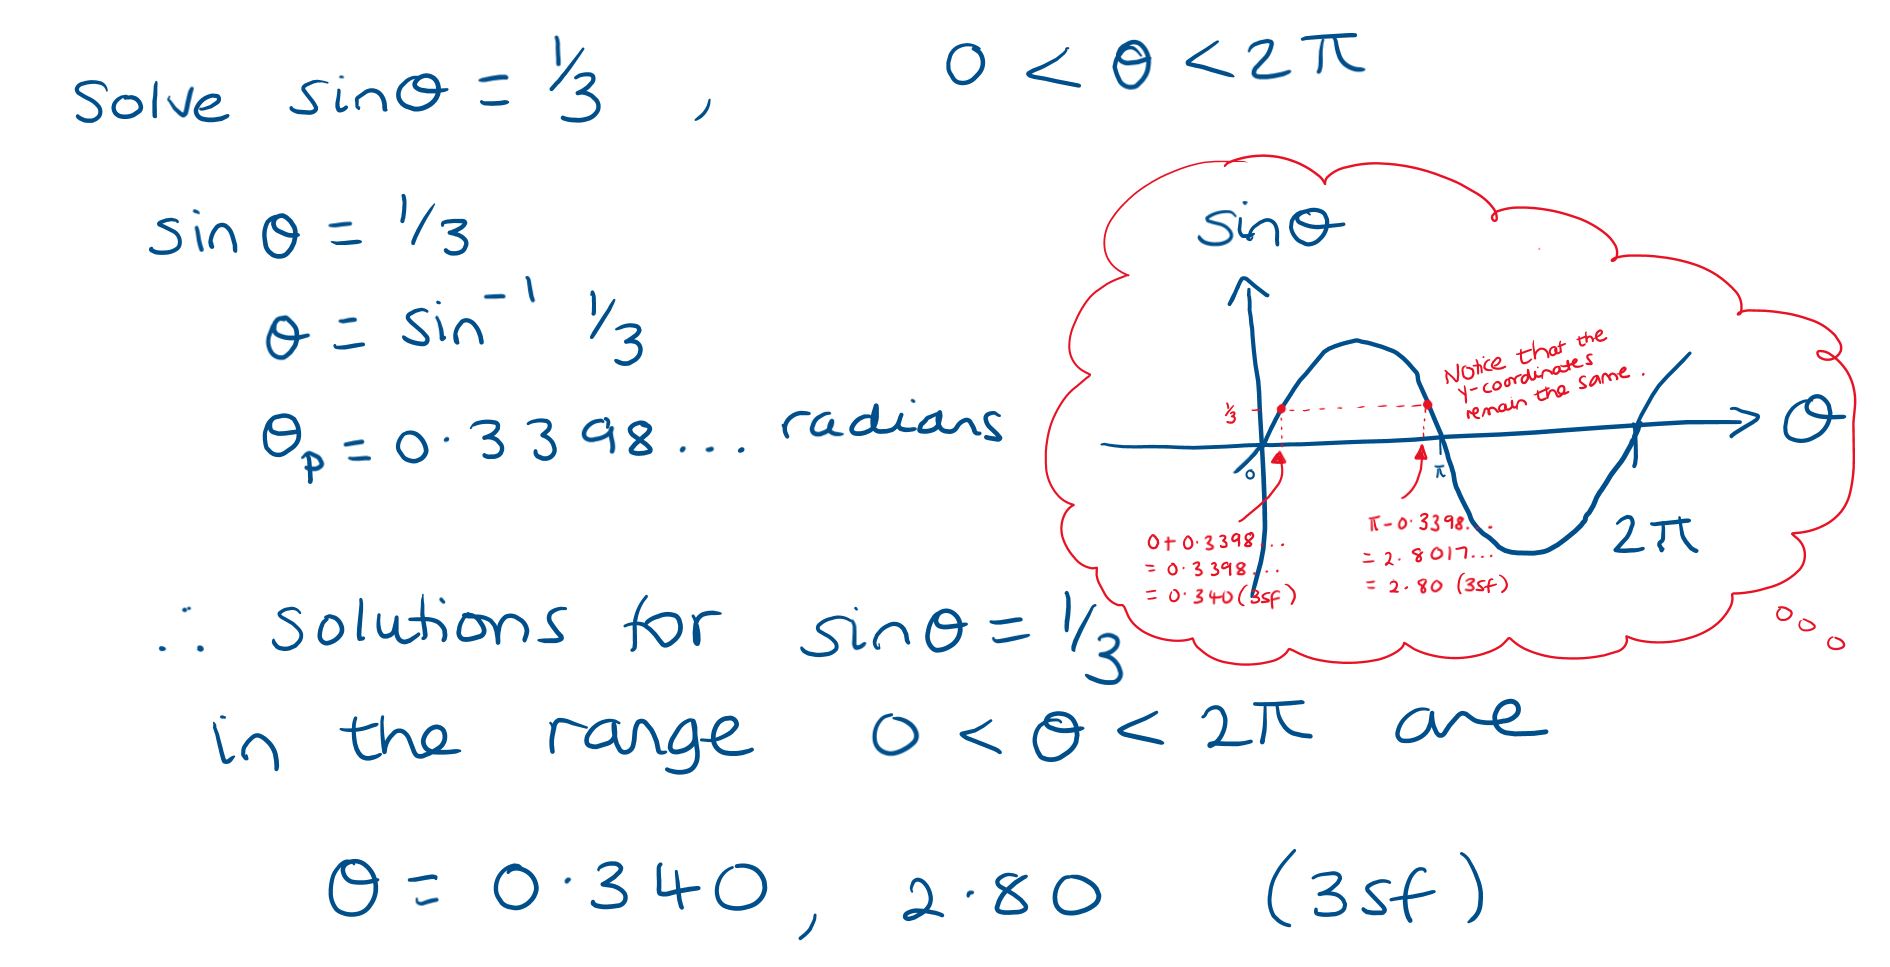 Solve sinθ = 1/3 , 0 < θ < 2π
sin θ = 1/3
θ = sin⁻¹ 1/3
θₚ = 0.3398... radians
sinθ
Notice that the
y-coordinates
remain the same.
1/3
θ
0
π
2π
0+0.3398...
= 0.3398...
= 0.340(3sf)
π-0.3398...
= 2.8017...
= 2.80 (3sf)
∴ solutions for sinθ = 1/3
in the range 0 < θ < 2π are
θ = 0.340, 2.80 (3sf)